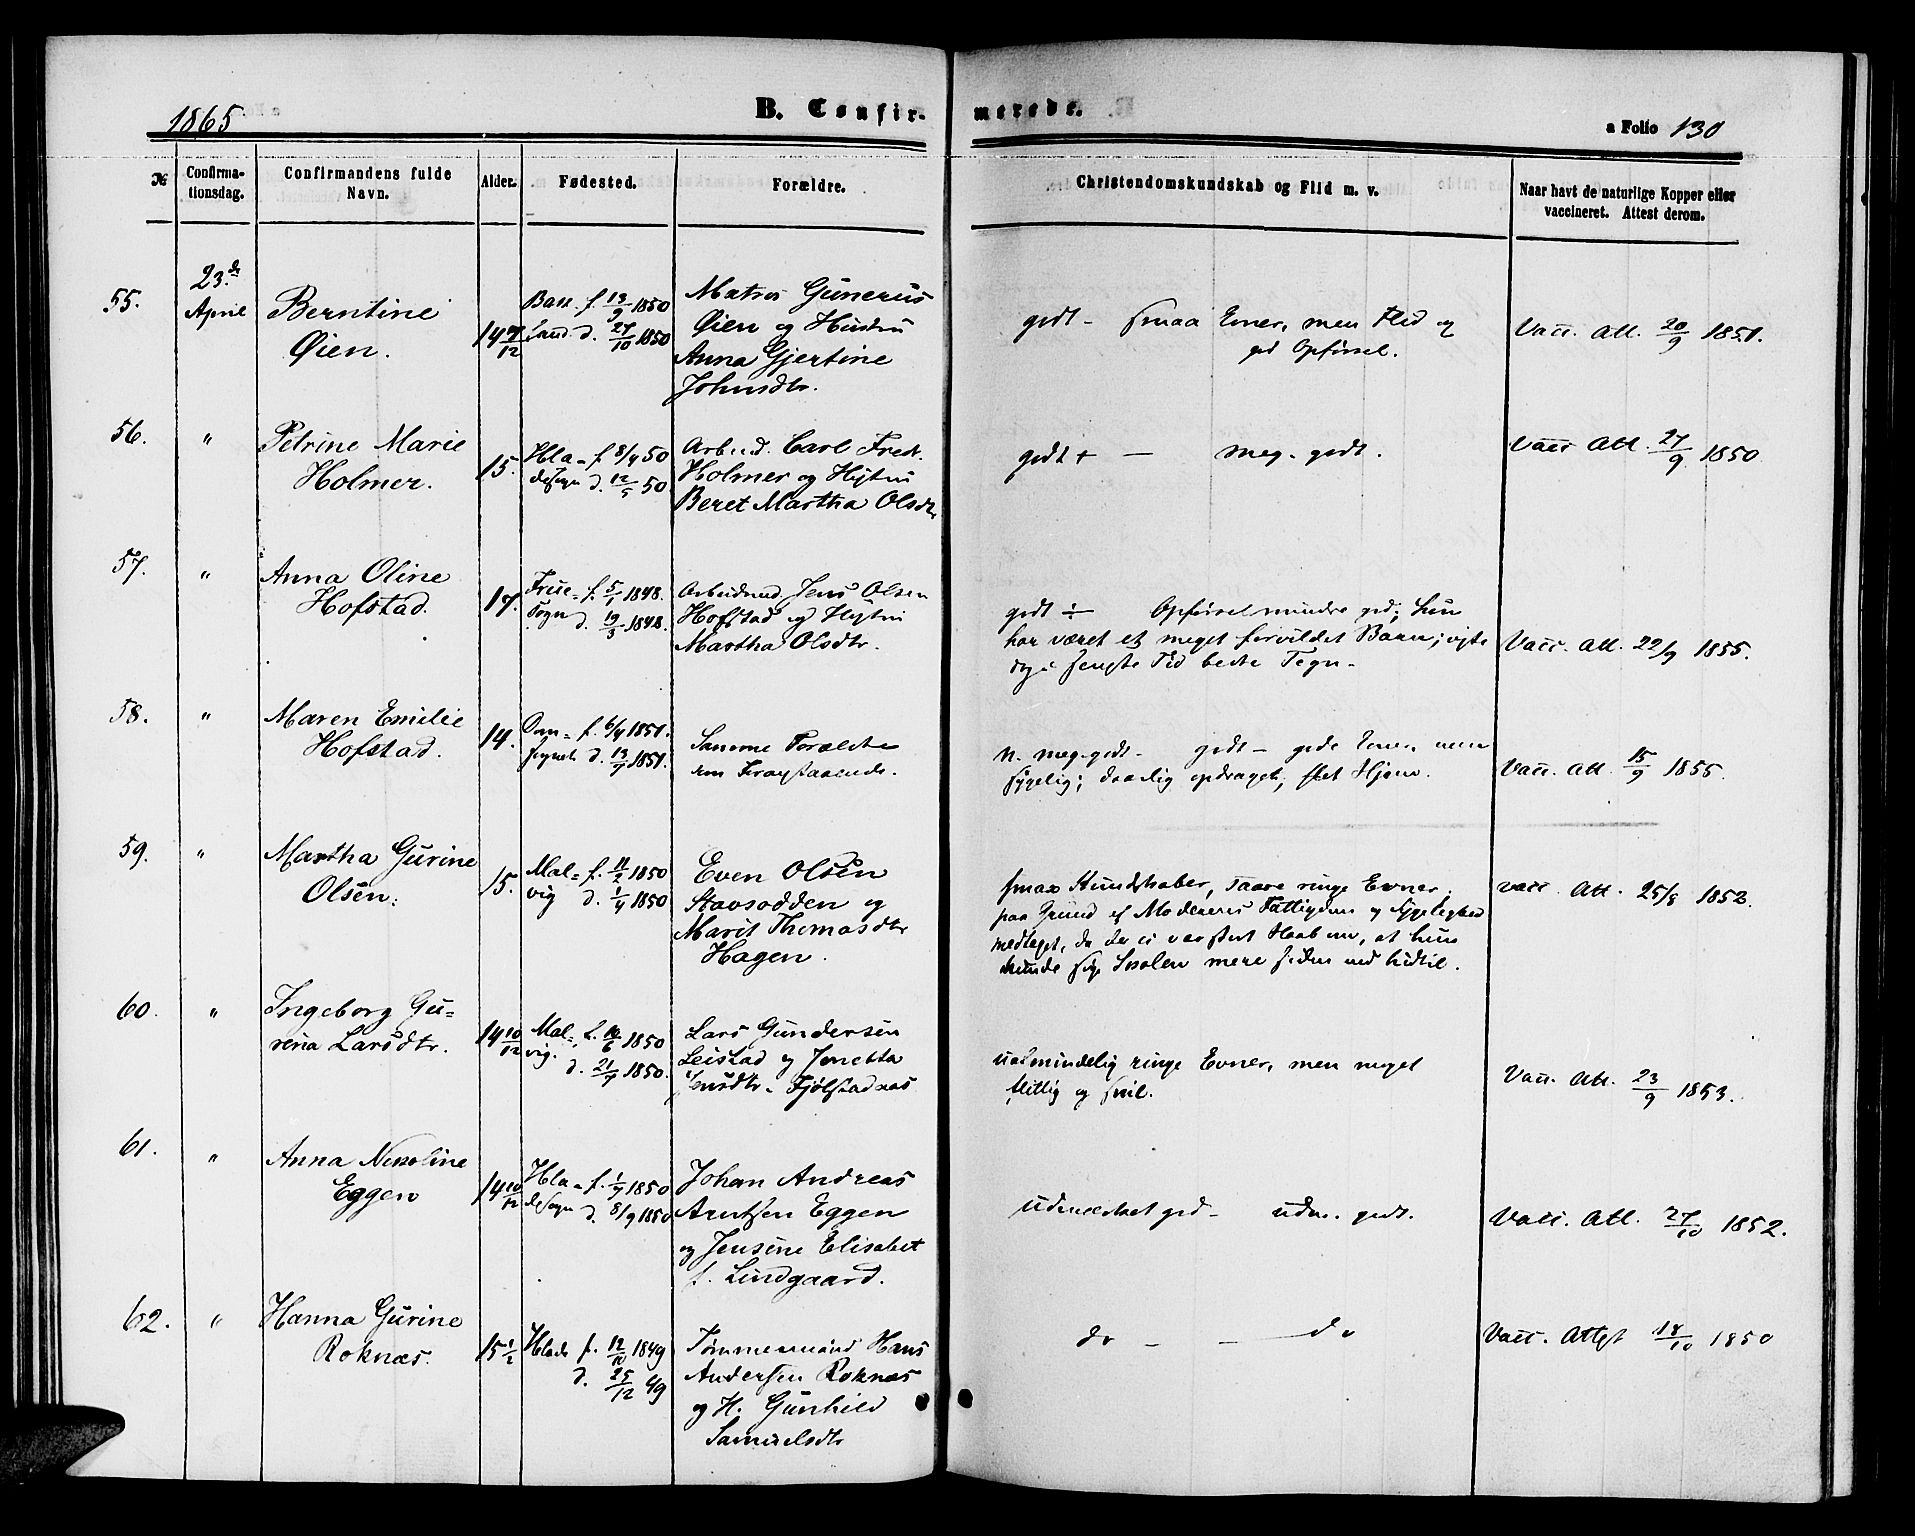 1865
B. Confir-
merede.
a Folio 130
№
Confirma-
tionsdag.
Confirmandens fulde
Navn.
Alder.
Fødested.
Forældre.
Christendomskundskab og Flid m. v.
Naar havt de naturlige Kopper eller
vaccineret. Attest derom.
55.
23.de
April
Berntine
Øien.
14 7/12
f. 13/9 1850
d. 27/10 1850
Matros Gunerus
Øien og Hustru
Anna Gjertine
Johnsdtr.
godt - smaa Evner, men Flid og
god Opførsel.
Vacc. Att. 20/9 1851.
56.
"
Petrine Marie
Holmer.
15.
Hla- f. 8/4 50
desogn d. 12/5 50
Arbmd. Carl Fred.
Holmer og Hustru
Beret Martha Olsdtr
godt + - meg. godt.
Vacc Att. 27/9 1850
57.
"
Anna Oline
Hofstad.
17.
Frue- f. 5/1 1848.
Sogn d. 19/3 1848.
Arbeidsmd. Jens Olsen
Hofstad og Hustru
Martha Olsdtr.
godt ÷ Opførsel mindre god; hun
har været et meget forvildet Barn; viste
dog i sengste Tid bedre Tegn.
Vacc. Att. 22/9 1855.
58.
"
Maren Emilie
Hofstad.
14.
Dom- f. 6/4 1851.
sognet d. 13/7 1851.
Samme Forældre
som Foregaaende.
n. meg. godt - godt - gode Evner men
sygelig; daarlig opdraget, slet Hjem.
Vacc. Att. 15/9 1855
59.
"
Martha Gurine
Olsen.
15.
Mal- f. 11/2 1850
vig d. 1/4 1850
Even Olsen
Stavsodden og
Marit Thomasdtr
Hagen.
smaa Kundskaber, saare ringe Evner;
paa Grund af Moderens Fattigdom og Sygelighed
medtaget, da der ei var stort Haab om, at hun
kunde søge Skolen mere siden end hidtil.
Vacc. Att. 25/8 1852.
60.
"
Ingeborg Gu-
rina Larsdtr.
14 10/12
Mal- f. 10/6 1850
vig. d. 21/7 1850.
Lars Gundersen
Leistad og Jonetta
Jensdtr. Fjølstadnæs
ualmindelig ringe Evner, men meget
flittig og snil.
Vacc. Att. 23/9 1853.
61.
"
Anna Nikoline
Eggen
14 10/12
Hla- f. 1/7 1850
desogn d. 8/9 1850
Johan Andreas
Arntsen Eggen
og Jensine Elisabet
f. Lindgaard.
udmærket god - udm. godt.
Vacc. Att. 27/10 1852.
62.
"
Hanna Gurine
Roknæs.
15 1/2
Hlade f. 12/10 1849
d. 25/12 49
Tømmermand Hans
Andersen Roknæs
og H. Gunhild
Samuelsdtr
do - - do
Vacc. Attest 18/10 1850